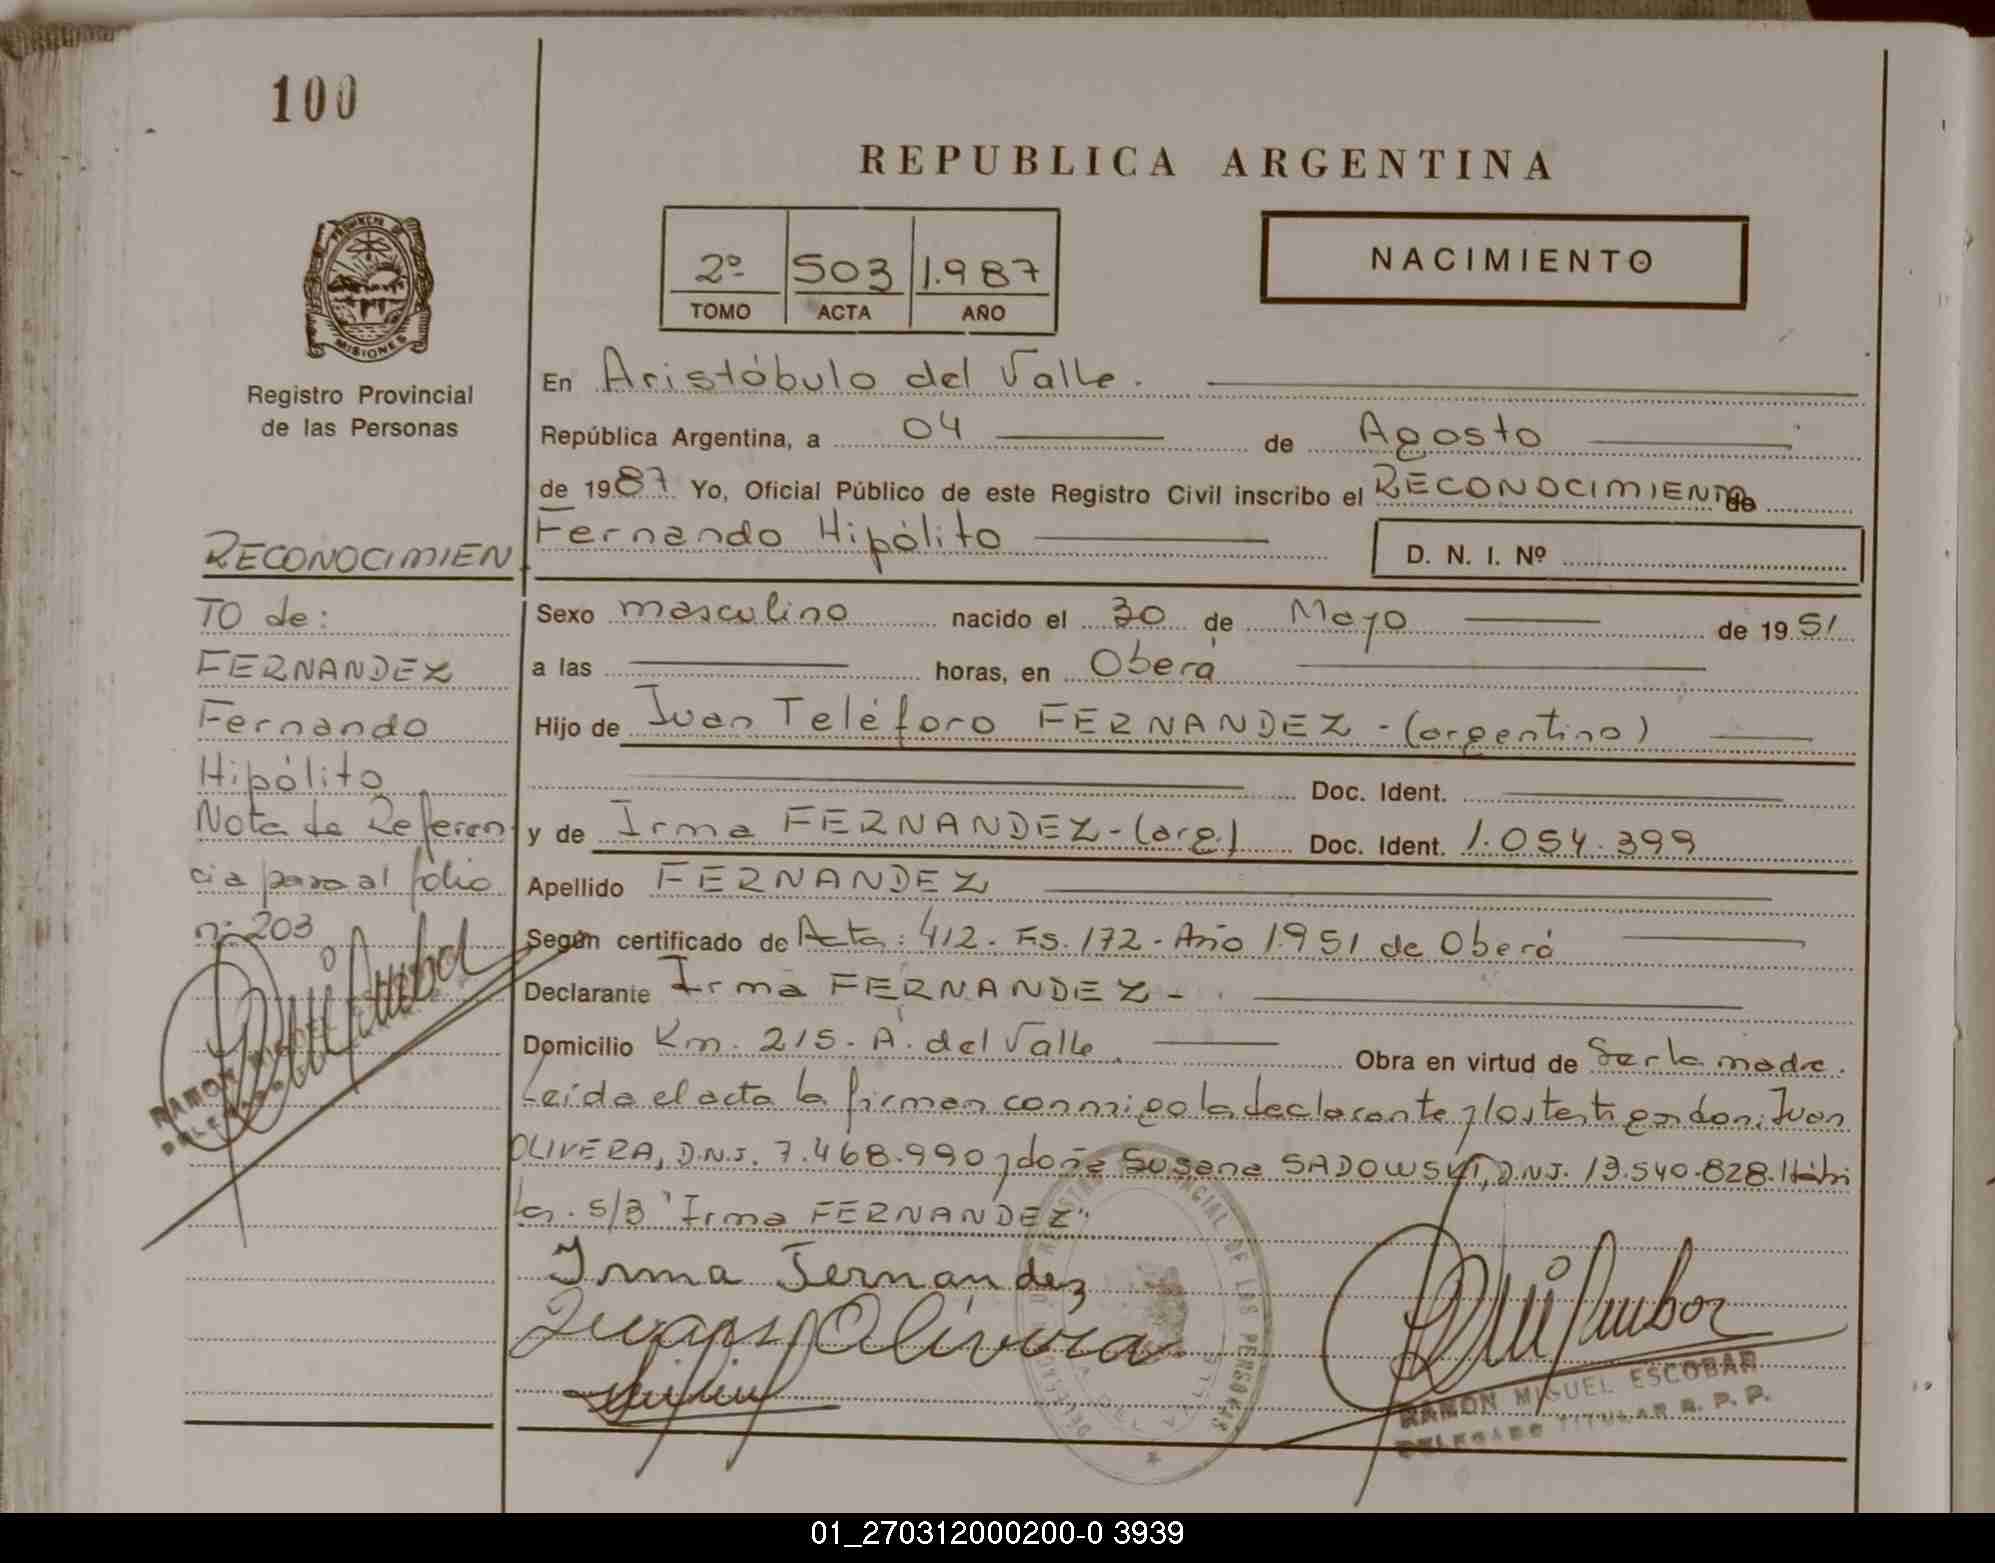 100
REPUBLICA ARGENTINA
2º 503 1.987
TOMO ACTA AÑO
NACIMIENTO
PROVINCIA DE
MISIONES
Registro Provincial
de las Personas
En Aristóbulo del Valle.
República Argentina, a 04 de Agosto
de 1987 Yo, Oficial Público de este Registro Civil inscribo el RECONOCIMIENTO de
Fernando Hipólito
D. N. I. Nº
RECONOCIMIEN
TO de:
FERNANDEZ
Fernando
Hipólito
Nota de Referen
cia para al folio
nº 203
RAMON MIGUEL
Sexo masculino nacido el 30 de Mayo de 1951
a las horas, en Oberá
Hijo de Juan Teléforo FERNANDEZ - (argentino)
Doc. Ident.
y de Irma FERNANDEZ - (arg.) Doc. Ident. 1.054.399
Apellido FERNANDEZ
Según certificado de Acta: 412. Fs. 172 - Año 1951 de Oberá
Declarante Irma FERNANDEZ -
Domicilio Km. 215. A. del Valle Obra en virtud de Ser la madre.
Leída el acta la firman conmigo la declarante y los testigos don: Juan
OLIVERA, D.N.J. 7.468.990 y doña Susana SADOWSKI, D.N.J. 13.540.828.
S/B "Irma FERNANDEZ"
Irma Fernandez
Olivera
REGISTRO PROVINCIAL DE LAS PERSONAS
A. DEL VALLE
RAMON MIGUEL ESCOBAR
DELEGADO TITULAR R. P. P.
01_270312000200-0 3939